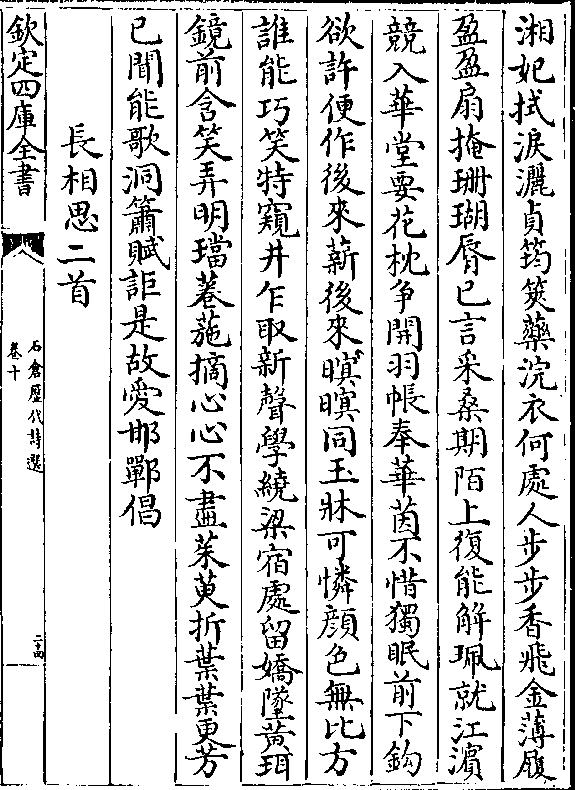 湘妃拭淚灑貞筠筴藥浣衣何處人步步香飛金薄履
盈盈扇掩珊瑚脣已言采桑期陌上復能解珮就江濱
競入華堂要花枕争開羽帳奉華茵不惜獨眠前下鈎
欲許便作後來薪後來暝暝同玉牀可憐顔色無比方
誰能巧笑特窺井乍取新聲學繞梁宿處留嬌墜黄珥
鏡前含笑弄明璫菤葹摘心心不盡茱萸折葉葉更芳
已聞能歌洞簫賦詎是故愛邯鄲倡
長相思二首
欽定四庫全書
石倉歷代詩選
卷十
二十四